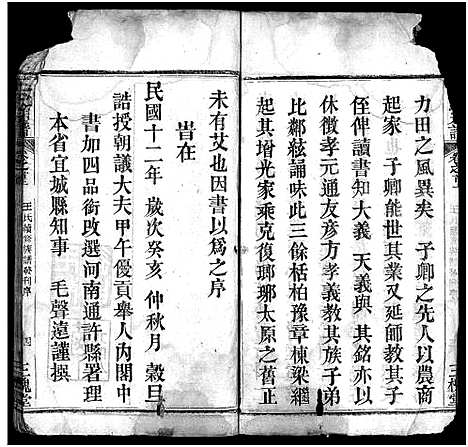 力田之風異矣 子卿之先人以農商
起家 子卿能世其業又延師教其子
侄俾讀書知大義 天義與 其銘亦以
休徵孝元通友彥方孝義教其族子弟
比鄰絃誦味此三餘栝柏豫章棟梁繼
起其增光家乘克復瑯瑘太原之舊正
未有艾也因書以爲之序
旹在
民國十二年 歲次癸亥 仲秋月 穀旦
誥授朝議大夫甲午優貢舉人內閣中
書加四品銜改選河南通許縣署理
本省宜城縣知事 毛聲遠謹撰
王氏續修族譜發刊序
四
三槐堂
三槐堂